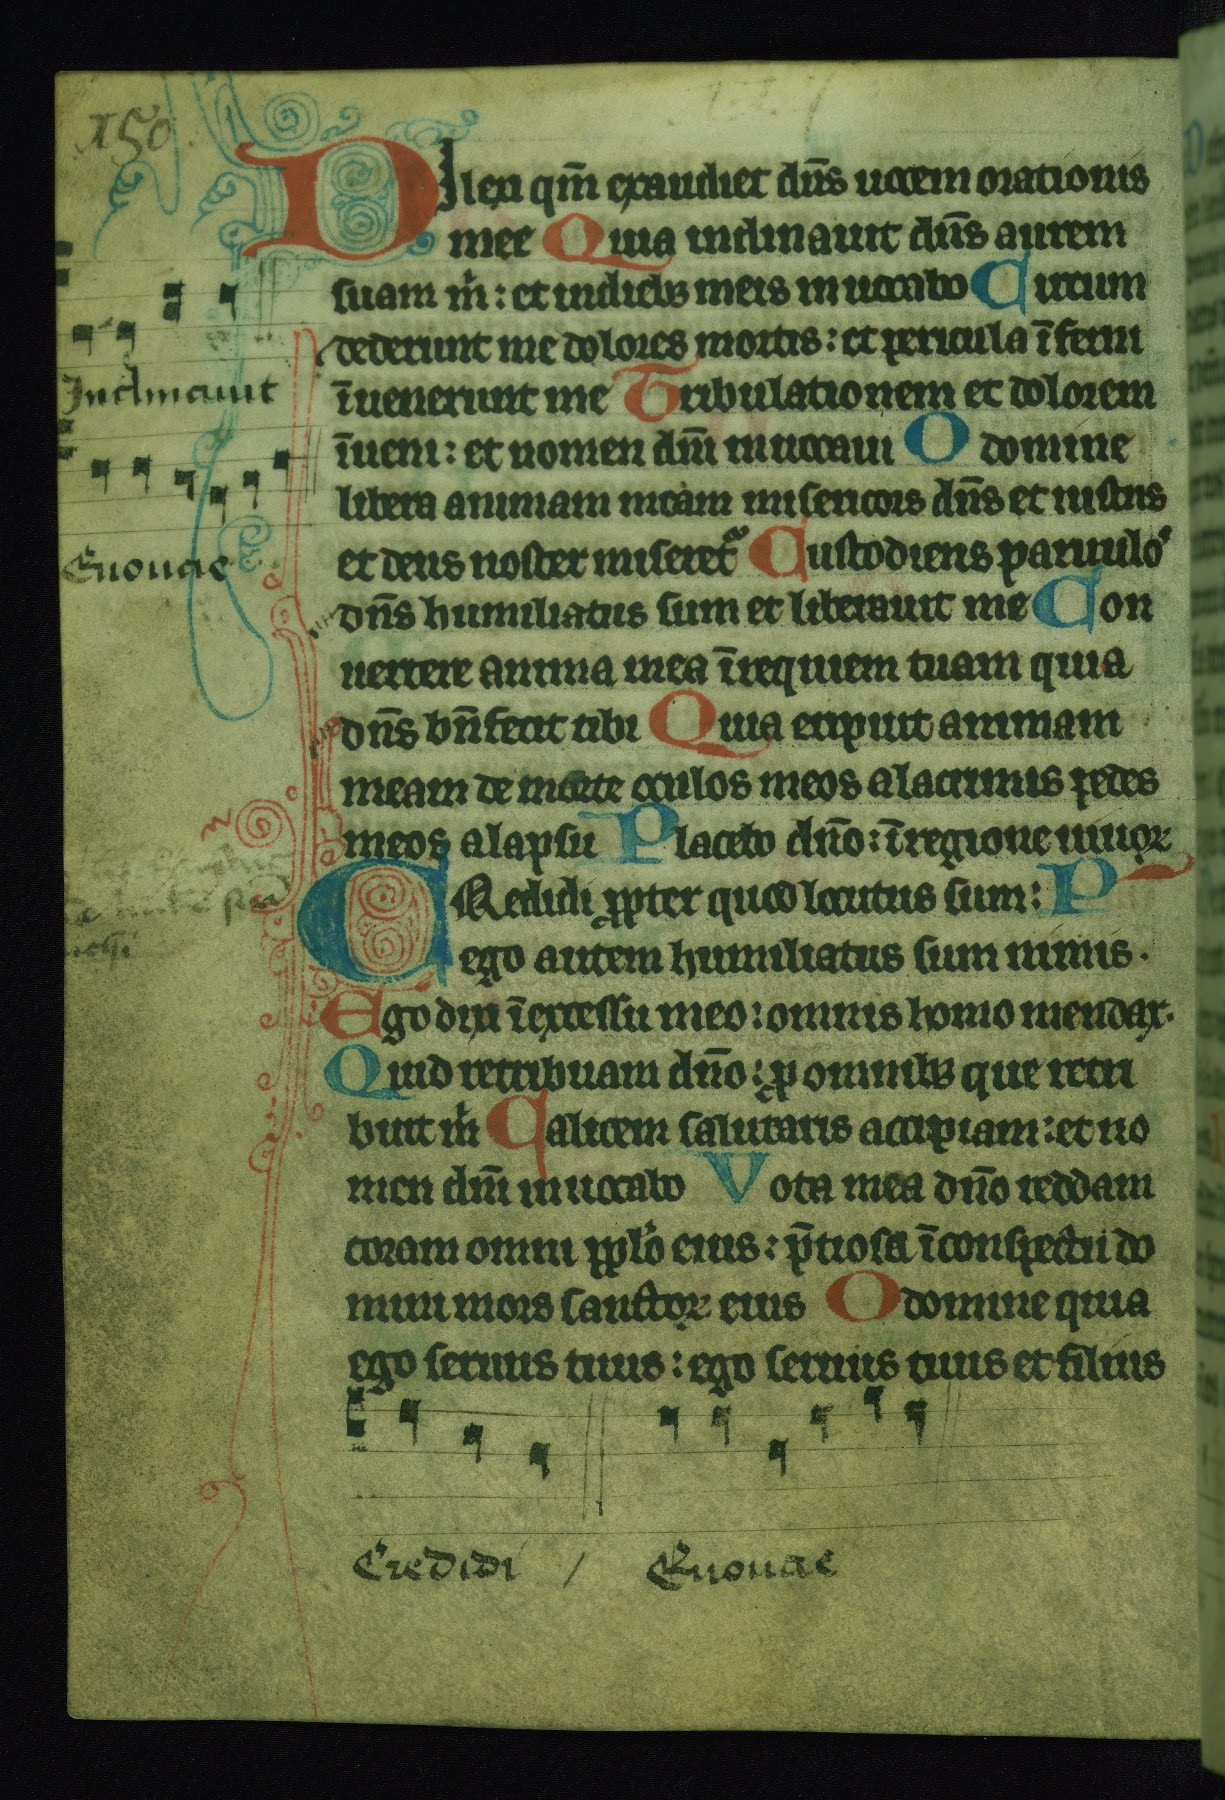 150
Dilexi qm̄ exaudiet dn̄s uocem orationis
mee Quia inclinauit dn̄s aurem
suam m̄ : et in dieb; meis inuocabo Circum
dederunt me dolores mortis : et pericula īferni
īuenerunt me Tribulationem et dolorem
īueni : et nomen dm̄i inuocaui O domine
libera animam meam misericors dn̄s et iustus
et deus noster miseret᷑ Custodiens paruulo᷒
dn̄s humiliatus sum et liberauit me Con
uertere anima mea ī requiem tuam quia
dn̄s bn̄fecit tibi Quia eripuit animam
meam de morte oculos meos a lacrimis pedes
meos a lapsu Placebo dn̄o : ī regione uiuoꝝ
CRedidi ꝓpter quod locutus sum : P
ego autem humiliatus sum nimis .
Ego dixi ī excessu meo : omnis homo mendax .
Quid retribuam dn̄o : ꝓ omnib; que retri
buit m̄ Calicem salutaris accipiam : et no
men dm̄i inuocabo Vota mea dn̄o reddam
coram omni ppl̄o eius : p̄tiosa ī conspectu do
mini mors sanctoꝝ eius O domine quia
ego seruus tuus : ego seruus tuus et filius
Inclinauit
Euouae
Credidi / Euouae